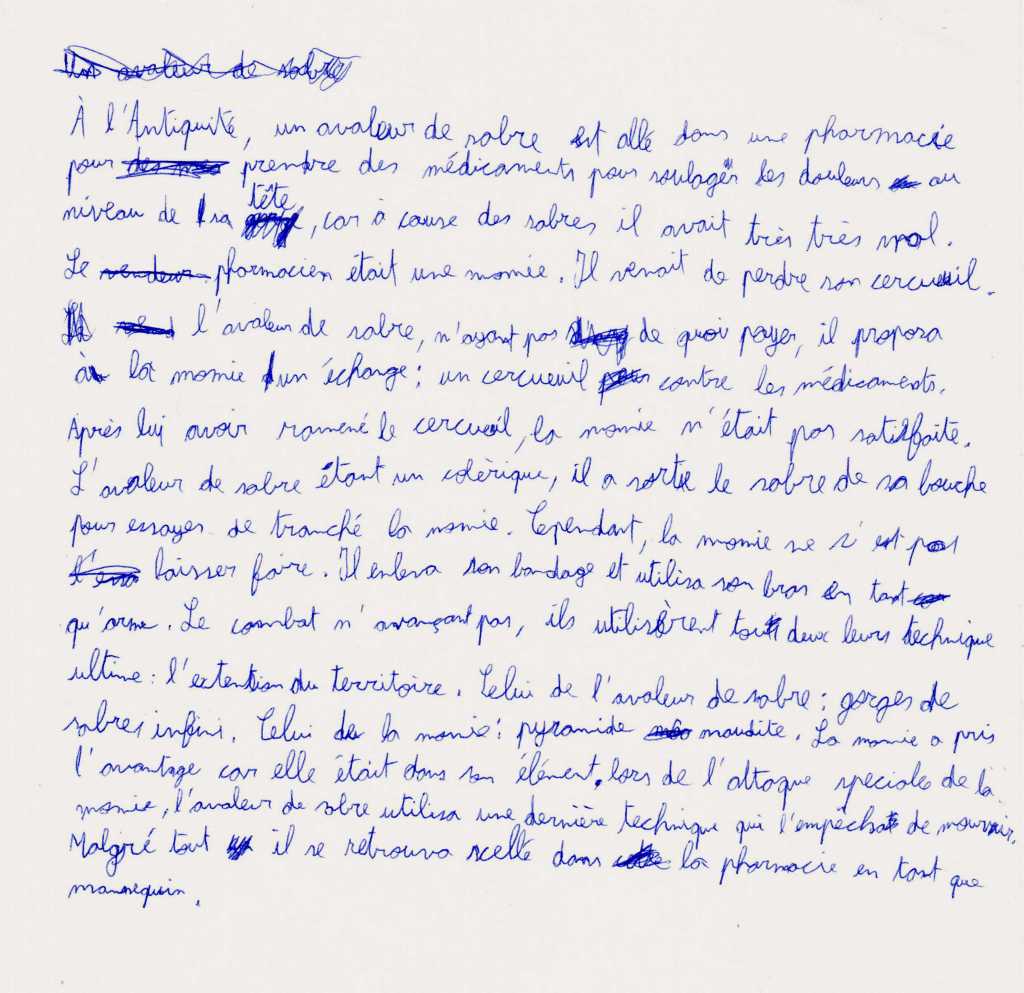 À l'Antiquité, un avaleur de sabre est allé dans une pharmacie
pour prendre des médicaments pour soulager les douleurs au
niveau de sa tête, car à cause des sabres il avait très très mal.
Le pharmacien était une momie. Il venait de perdre son cercueil.
l'avaleur de sabre, n'ayant pas de quoi payer, il proposa
à la momie un échange : un cercueil contre les médicaments.
Après lui avoir ramené le cercueil, la momie n'était pas satisfaite.
L'avaleur de sabre étant un colérique, il a sortie le sabre de sa bouche
pour essayer de tranché la momie. Cependant, la momie ne s'est pas
laisser faire. Il enleva son bandage et utilisa son bras en tant
qu'arme. Le combat n'avançant pas, ils utilisèrent tout deux leurs technique
ultime : l'extension du territoire. Celui de l'avaleur de sabre : gorges de
sabres infini. Celui de la momie : pyramide maudite. La momie a pris
l'avantage car elle était dans son élément. lors de l'attaque speciale de la
momie, l'avaleur de sabre utilisa une dernière technique qui l'empêcha de mourir.
Malgré tout il se retrouva scellé dans la pharmacie en tant que
mannequin.